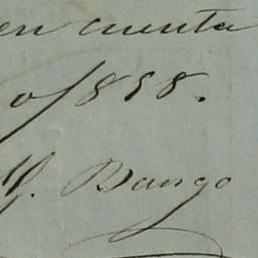 en cuenta
o/858.
M. Dango